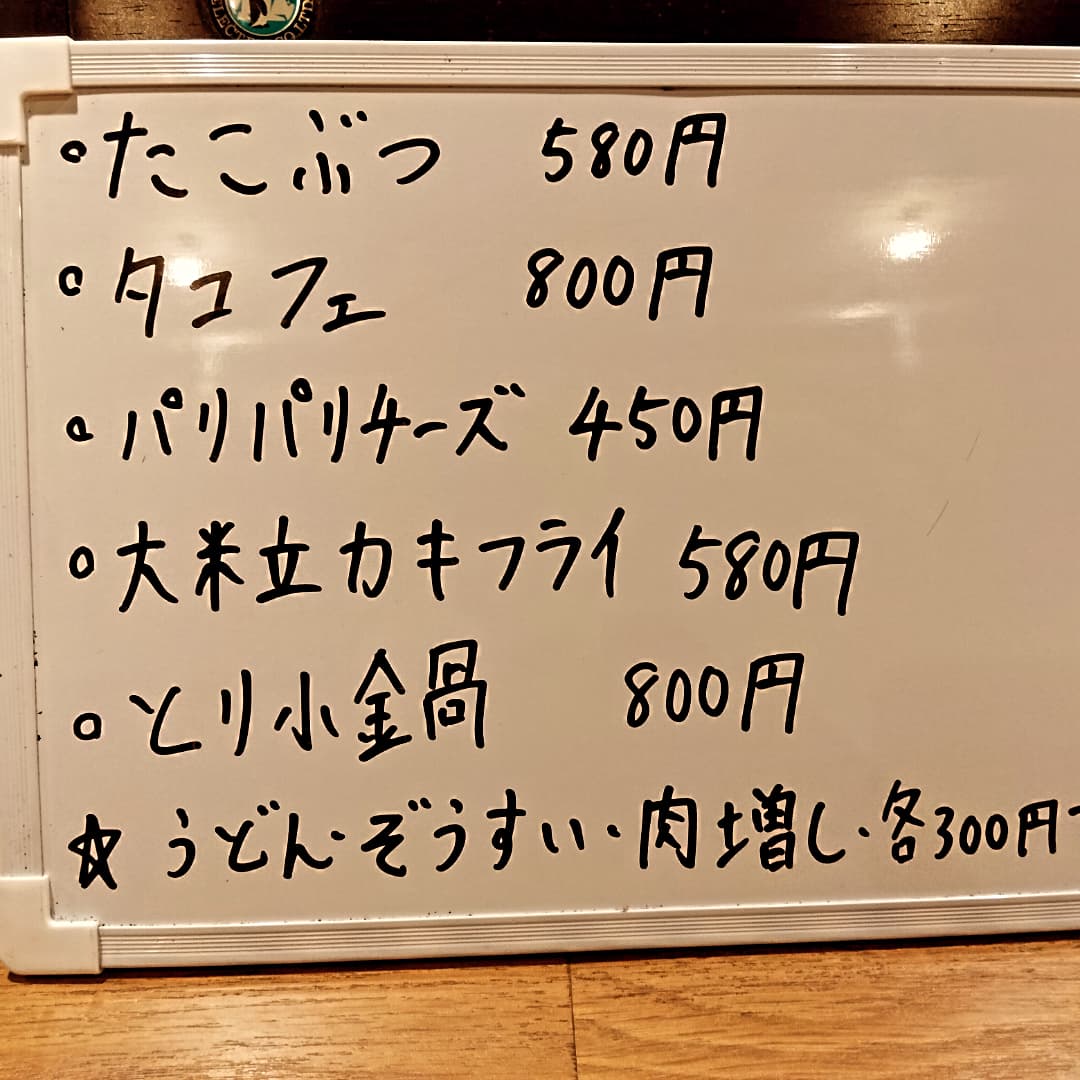 ◦たこぶつ 580円
◦タコフェ 800円
◦パリパリチーズ 450円
◦大粒カキフライ 580円
◦とり小鍋 800円
☆うどん・ぞうすい・肉増し・各300円